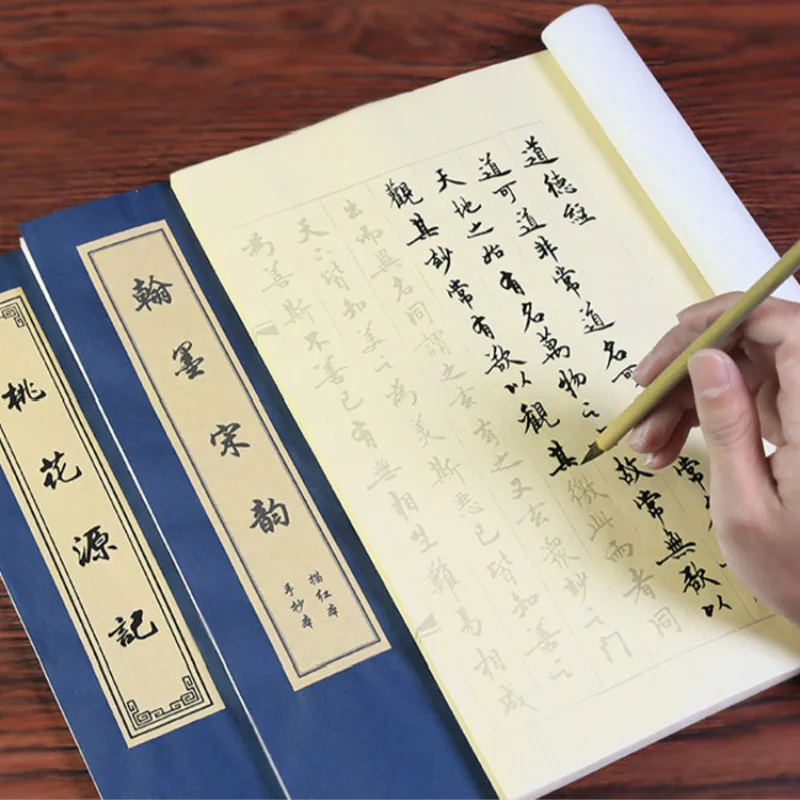 道德經
道可道非常道名可
天地之始有名萬物之
故常無欲以
觀其妙常有欲以觀其徼此兩者同
出而異名同謂之玄玄之又玄衆妙之門
天下皆知美之為美斯惡已皆知善之
為善斯不善已有無相生難易相成
翰墨宋韵
描红本
手抄本
桃花源記